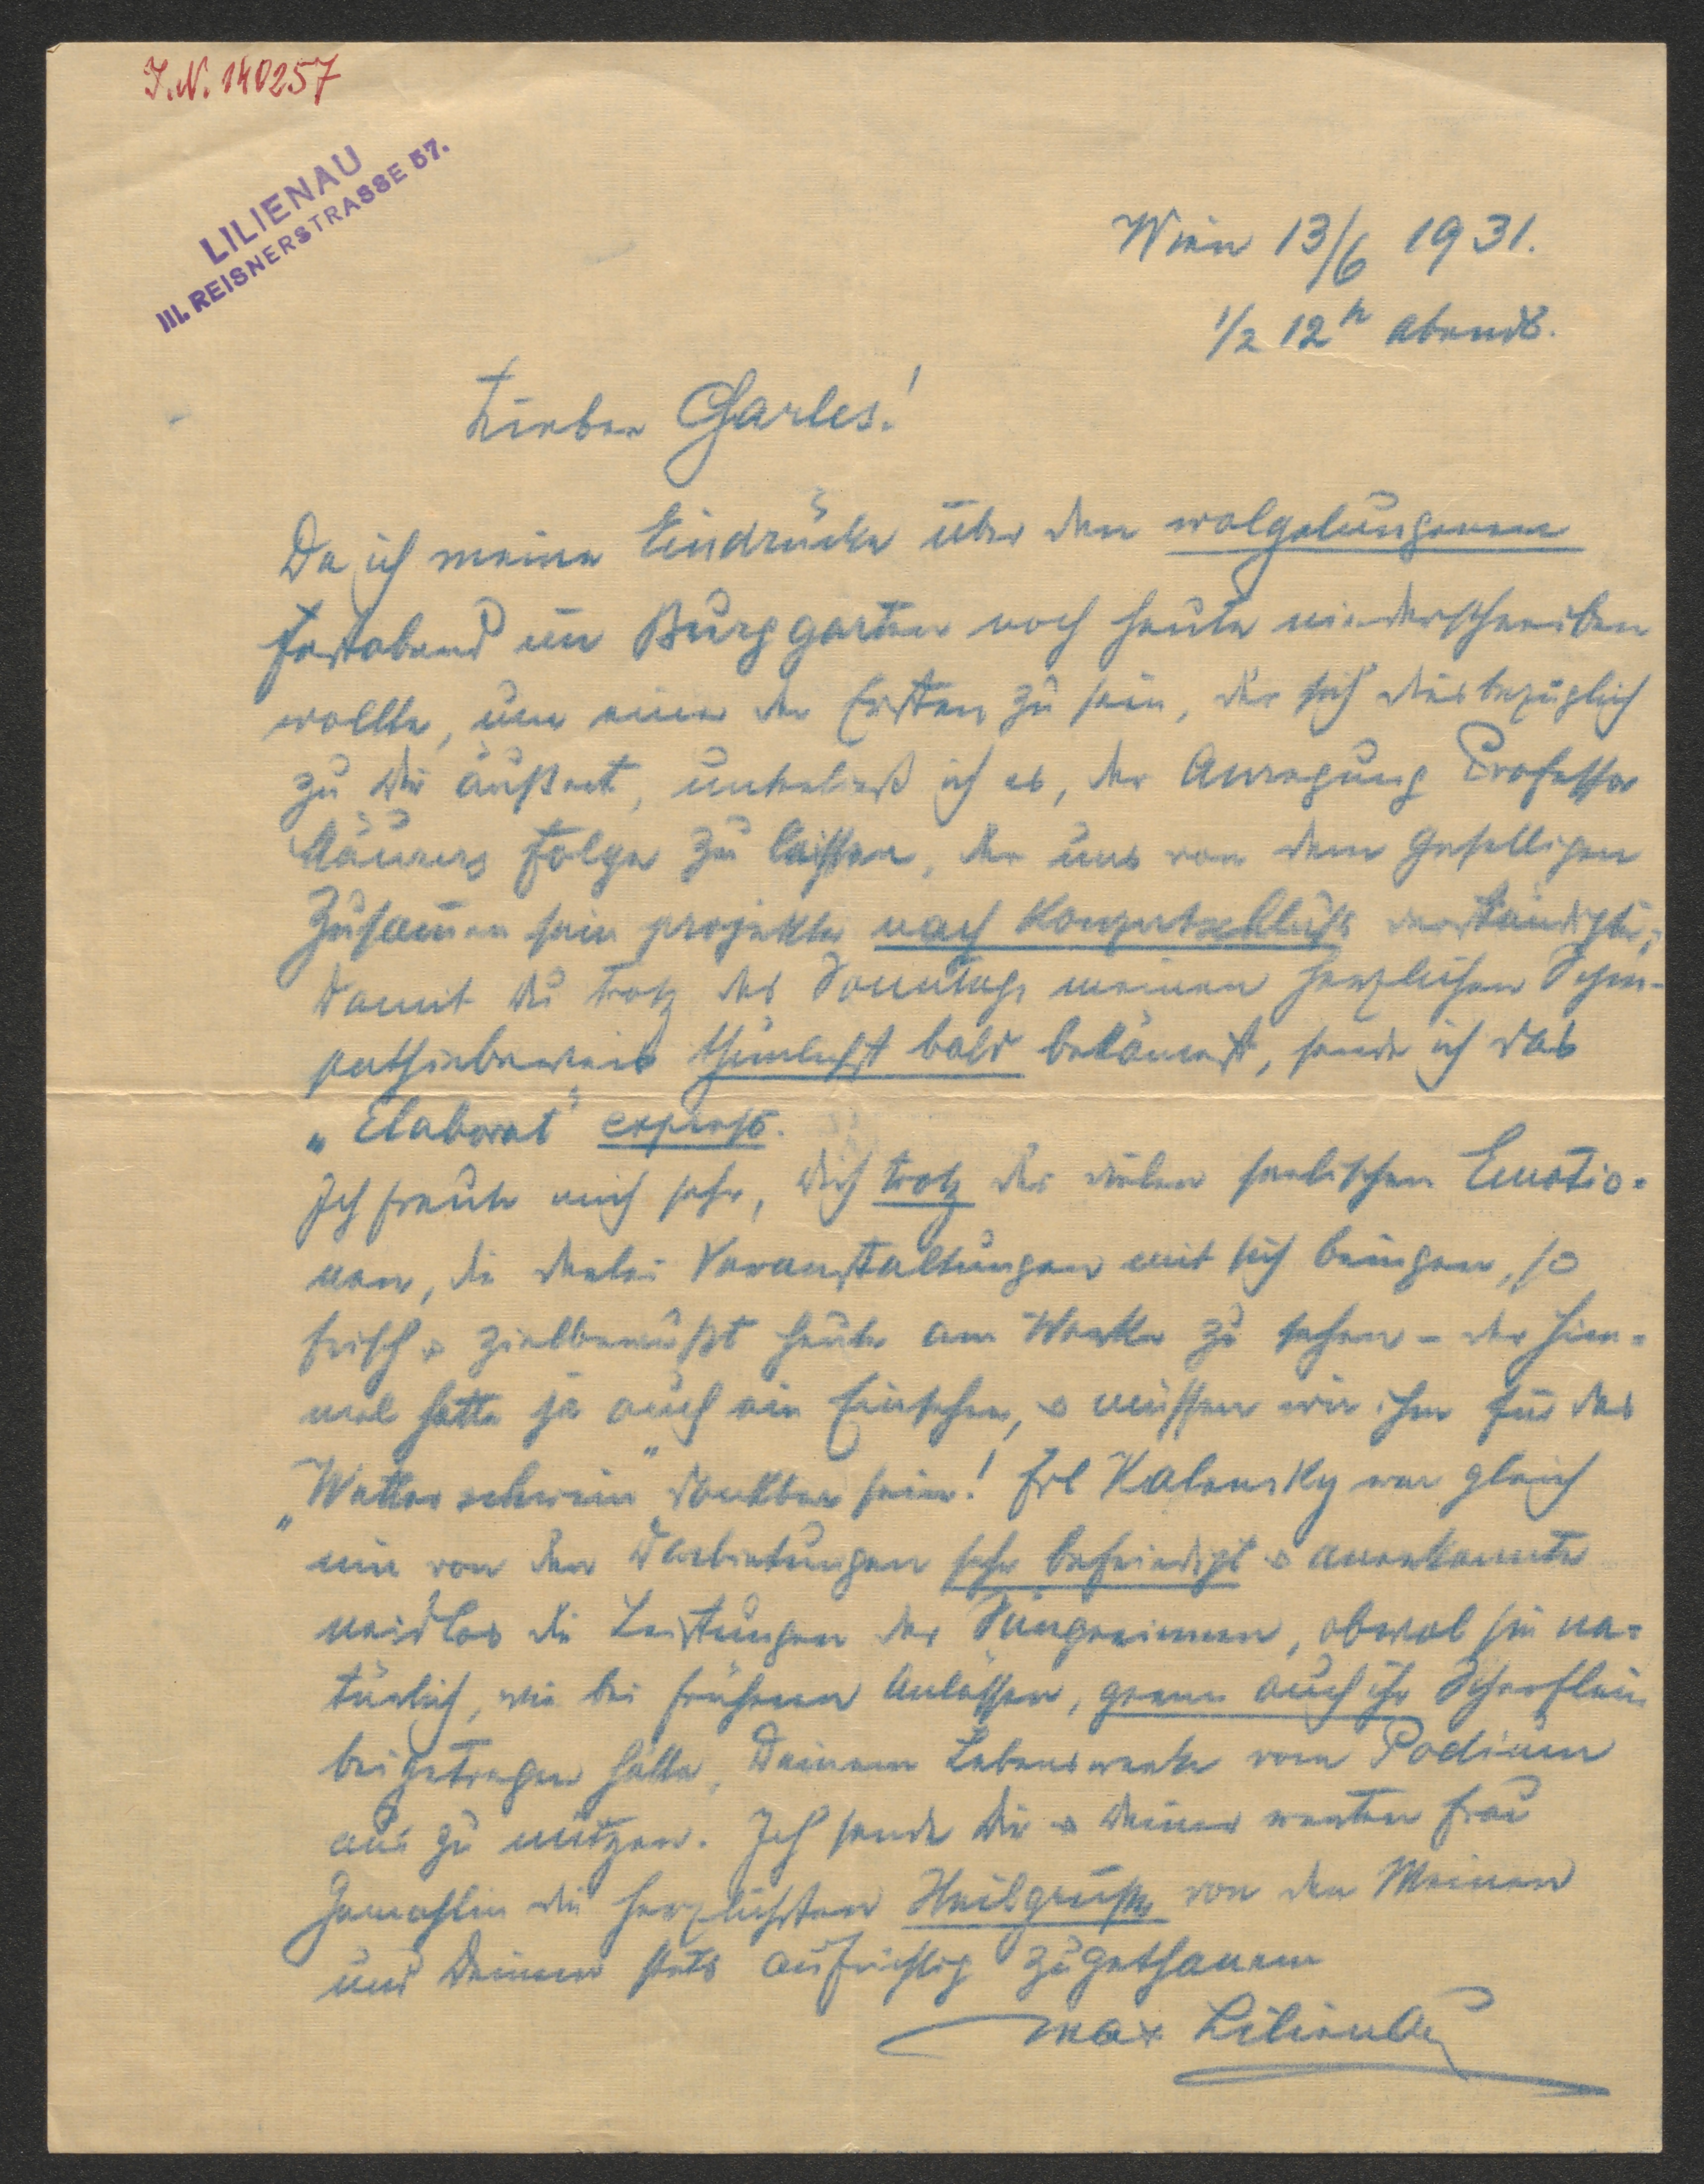 I.N. 140257
LILIENAU
III. REISNERSTRASSE 57.
Wien 13/6 1931.
1/2 12h abends.
Lieber Charles!
Da ich meine Eindrücke über den wolgelungenen
Festabend im Burggarten noch heute niederschreiben
wollte, um einer der Ersten zu sein, der sich diesbezüglich
zu Dir äußert, unterließ ich es, der Anregung Professor
Folge zu leisten, der uns von dem geselligen
Zusam̅en sein projekte nach Konzertschluß verständigte;
damit Du trotz des Sonntags meinen herzlichen Sym-
pathiebeweis thunlichst bald bekom̅st, sende ich das
„Elaborat" express.
Ich freute mich sehr, Dich trotz der vielen seelischen Emotio=
nen, die derlei Veranstaltungen mit sich bringen, so
frisch & zielbewußt heute am Werke zu sehen - der Him=
mel hatte ja auch ein Einsehen, & müssen wir ihm für das
„Wetterschwein" dankbar sein! Frl Kalensky war gleich
mir von den Darbietungen sehr befriedigt & anerkannte
neidlos die Leistungen der Sängerinnen, obwol sie na=
türlich, wie bei früheren Anlässen, gerne auch ihr Scherflein
beigetragen hätte, Deinem Lebenswerke vom Podium
aus zu nützen. Ich sende Dir & Deiner werten Frau
Gemahlin die herzlichsten Heilgrüße von den Meinen
und Deinem stets aufrichtig zugethanem
Max Lilienau